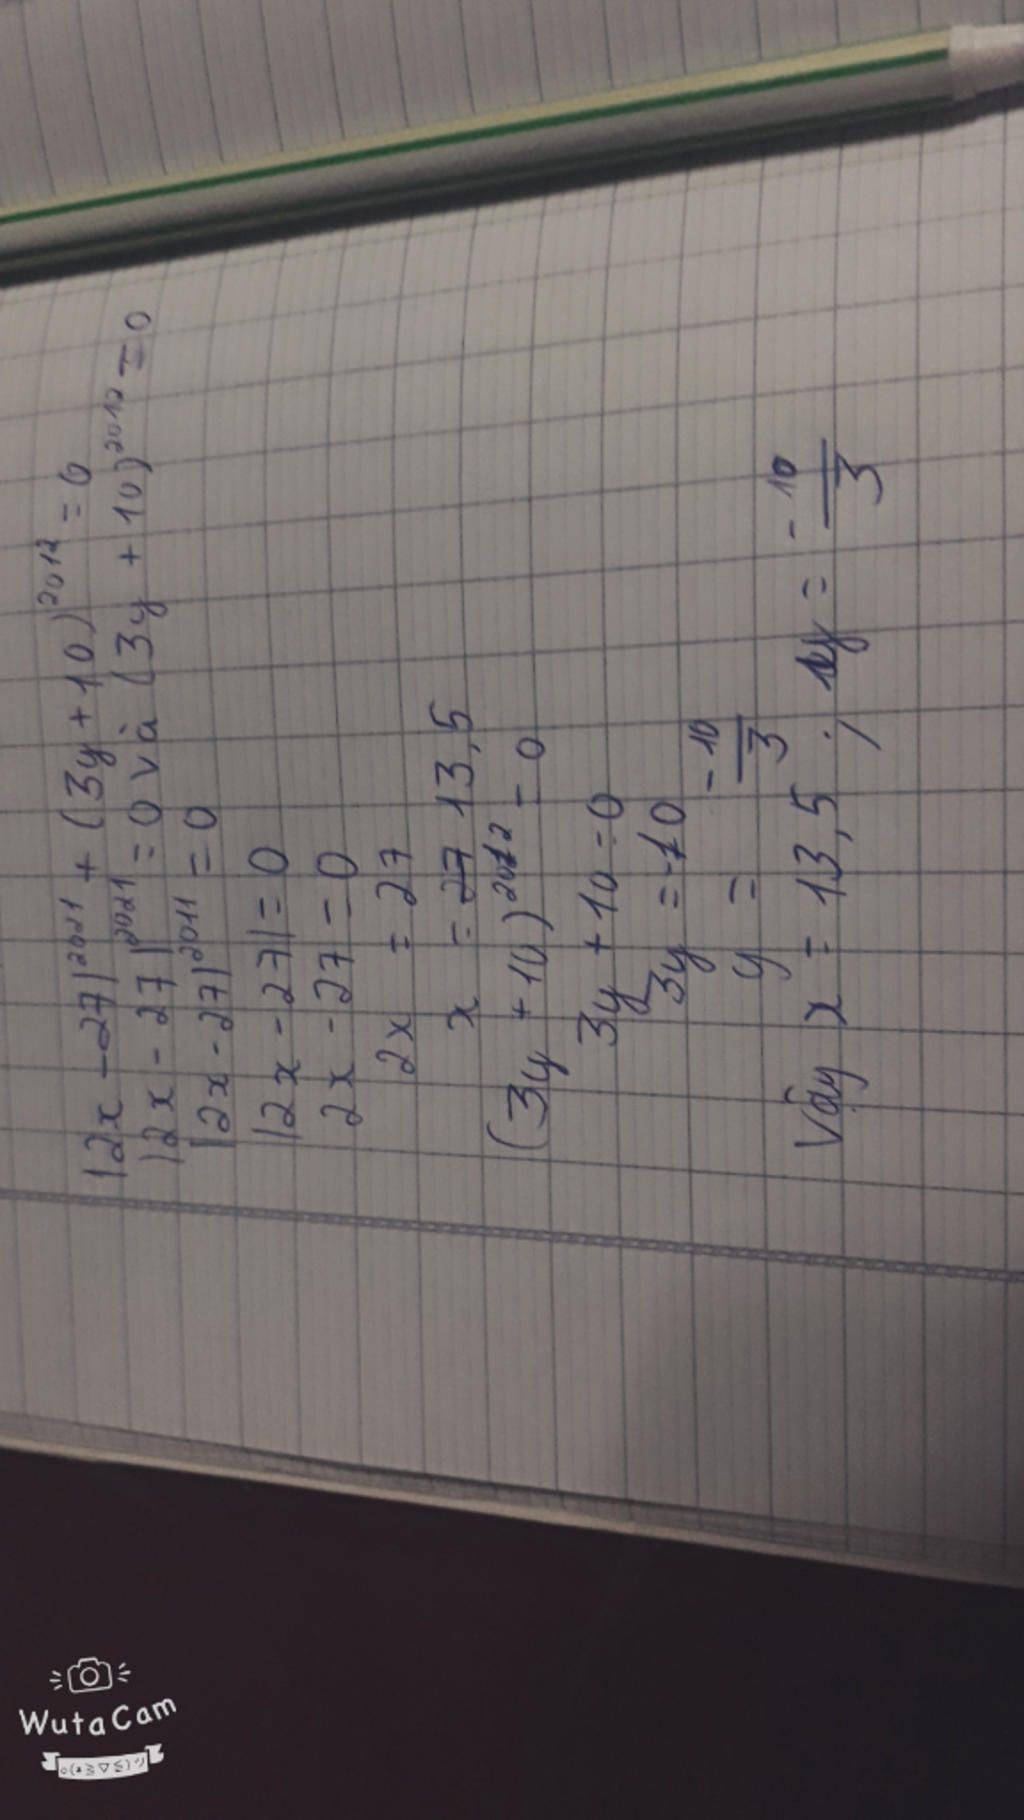 |2x - 27|²⁰²¹ + (3y + 10)²⁰¹² = 0
|2x - 27|²⁰²¹ = 0 và (3y + 10)²⁰¹² = 0
|2x - 27|²⁰¹¹ = 0
|2x - 27| = 0
2x - 27 = 0
2x = 27
x = 13,5
(3y + 10)²⁰¹² = 0
3y + 10 = 0
3y = -10
y = -10/3
Vậy x = 13,5 ; y = -10/3
WutaCam